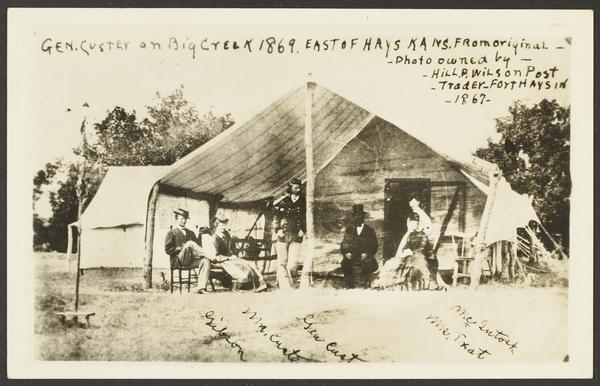 GEN. Custer on Big Creek 1869. EAST OF HAYS KANS. From original -
- Photo owned by -
- HILL.P. Wilson Post
- Trader - FORT HAYS IN
- 1867 -
Gibson
Mrs. Custe
Gen Cust
Mc Intosh
Mrs. Trat